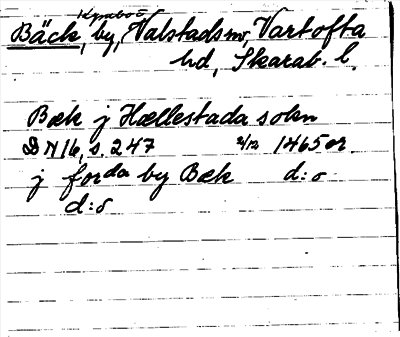 Kymbo=
Bäck, by, Valstads sn, Vartofta
hd, Skarab. l.
Bæk j Hællestada sokn
DN 16, s. 247 2/12 1465 or.
j forda by Bæk d:o
d:o